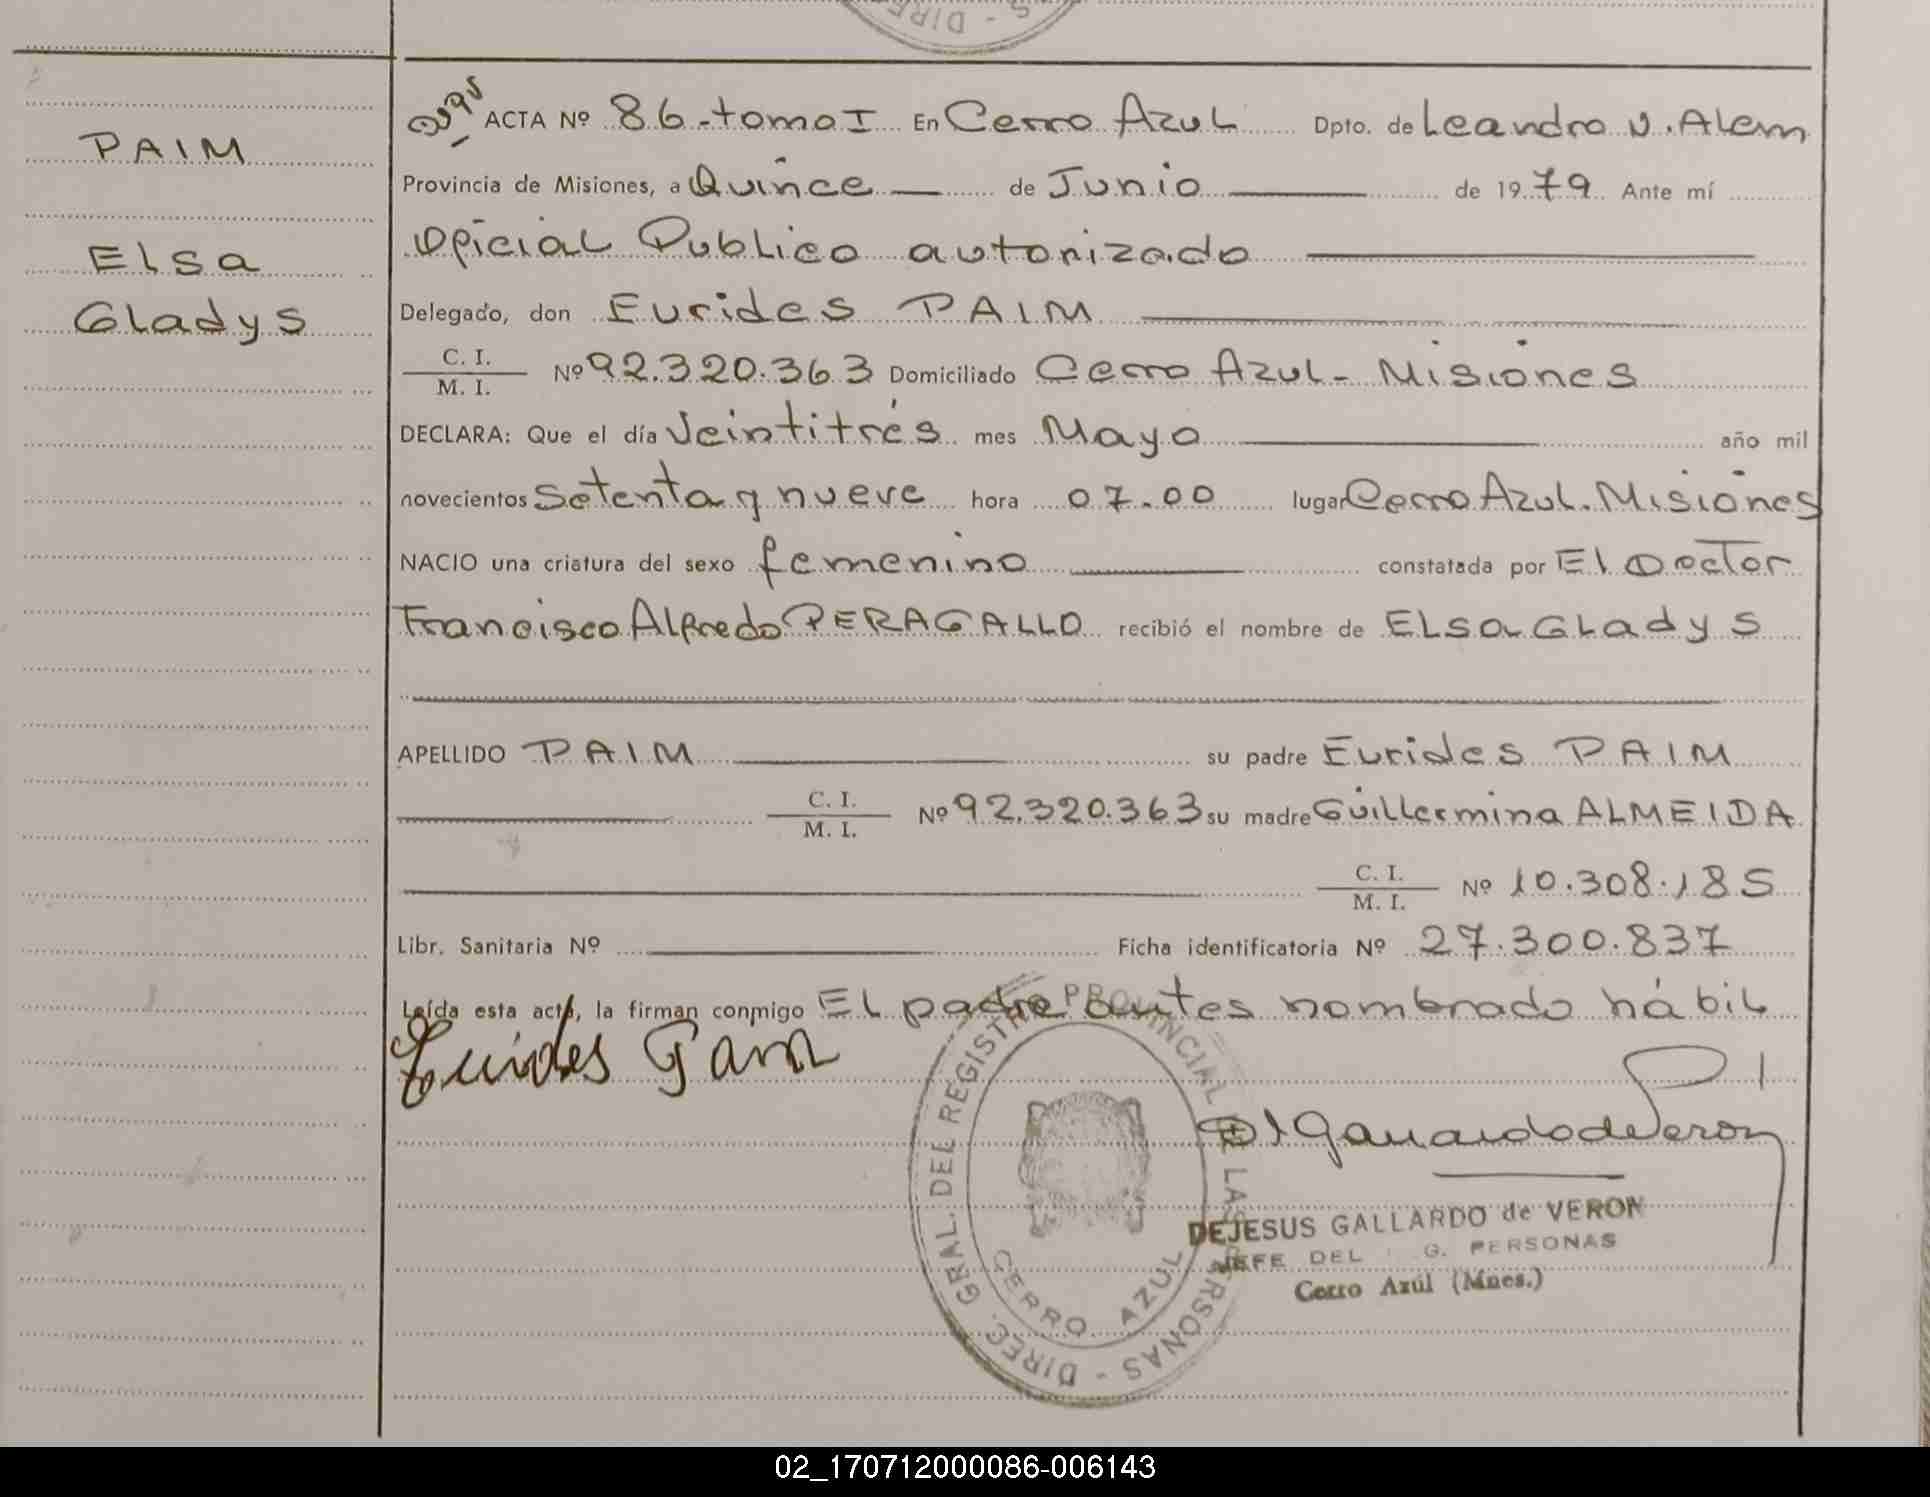 PAIM
Elsa
Gladys
ACTA Nº 86-tomo I En Cerro Azul Dpto. de Leandro N. Alem
Provincia de Misiones, a Quince de Junio de 1979 Ante mí
Oficial Publico autorizado
Delegado, don Eurides PAIM
C. I.
M. I.
Nº 92.320.363 Domiciliado Cerro Azul - Misiones
DECLARA: Que el día Veintitrés mes Mayo año mil
novecientos Setenta y nueve hora 07.00 lugar Cerro Azul. Misiones
NACIO una criatura del sexo femenino constatada por El Doctor
Francisco Alfredo PERAGALLO recibió el nombre de ELSA GLadyS
APELLIDO PAIM su padre Eurides PAIM
C. I.
M. I.
Nº 92.320.363 su madre Guillermina ALMEIDA
C. I.
M. I.
Nº 10.308.185
Libr. Sanitaria Nº Ficha identificatoria Nº 27.300.837
Leída esta acta, la firman conmigo El padre antes nombrado hábil
Eurides Paim
DIREC. GRAL. DEL REGISTRO PROVINCIAL DE LAS PERSONAS -
CERRO AZUL
DEJESUS GALLARDO de VERON
JEFE DEL G. PERSONAS
Cerro Azúl (Mnes.)
S - DIRE
02_170712000086-006143